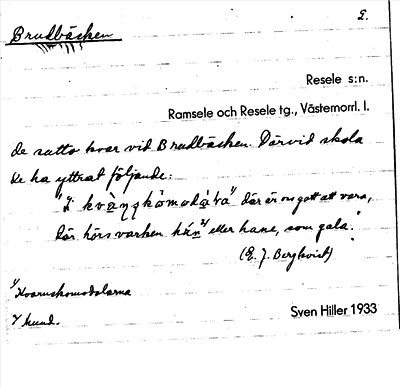 Brudbäcken
2.
Resele s:n.
Ramsele och Resele tg., Västernorrl. l.
de satto kvar vid Brudbäcken. Därvid skola
de ha yttrat följande:
"I kvànskòmodàla¹⁾ där är oss gott att vara,
där hörs varken hún²⁾ eller hane, som gala."
(E. J. Bergkvist)
1) Kvarnskomodalarna
2) hund.
Sven Hiller 1933